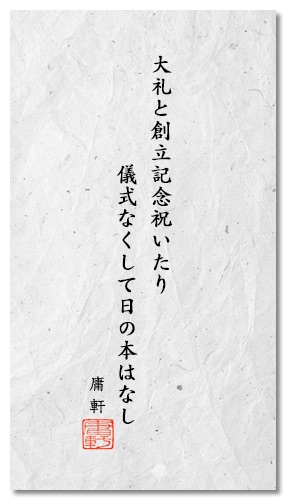 大礼と創立記念祝いたり
儀式なくして日の本はなし
庸軒